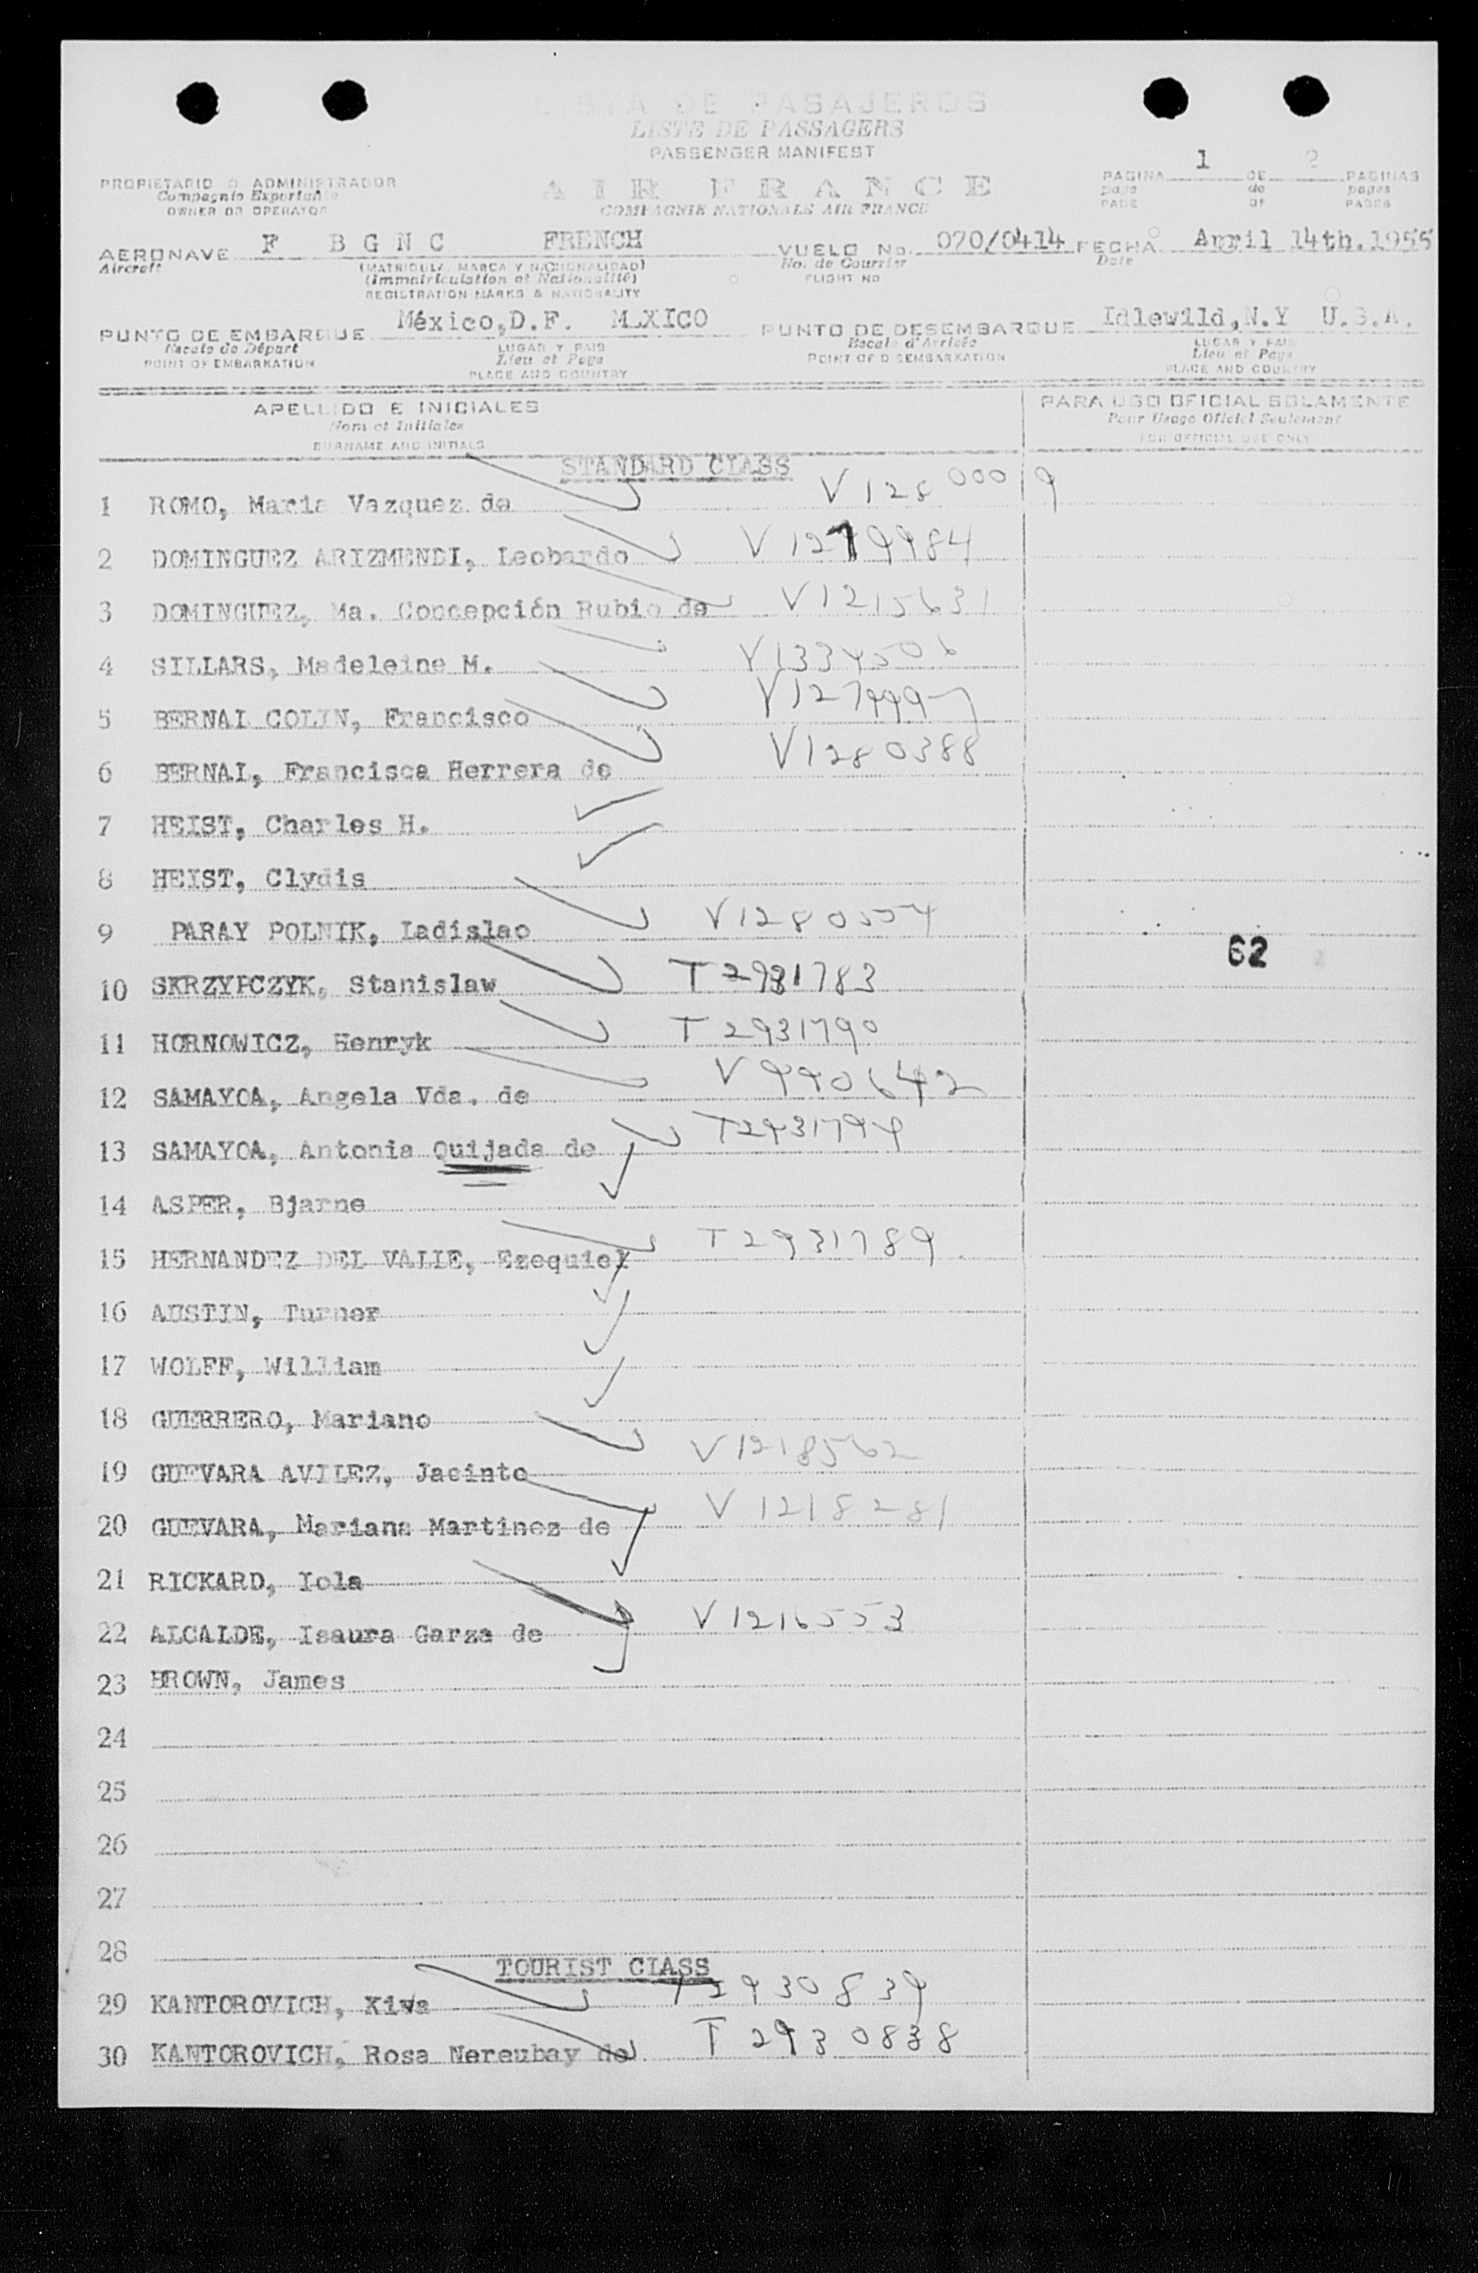 LISTA DE PASAJEROS
LISTE DE PASSAGERS
PASSENGER MANIFEST
AIR FRANCE
COMPAGNIE NATIONALE AIR FRANCE
PROPIETARIO O ADMINISTRADOR
Compagnie Exportante
OWNER OR OPERATOR
PAGINA 1 DE 2 PAGINAS
page de pages
PAGE OF PAGES
AERONAVE F BGNC FRENCH VUELO No. 070/0414 FECHA April 14th.1955
Aircraft (MATRICULA, MARCA Y NACIONALIDAD) No. de Courrier Date
(Immatriculation et Nationalité) FLIGHT NO
REGISTRATION MARKS & NATIONALITY
PUNTO DE EMBARQUE México,D.F. MEXICO PUNTO DE DESEMBARQUE Idlewild,N.Y U.S.A.
Escale de Départ LUGAR Y PAIS Escale d'Arrivée LUGAR Y PAIS
POINT OF EMBARKATION Lieu et Pays POINT OF DISEMBARKATION Lieu et Pays
PLACE AND COUNTRY PLACE AND COUNTRY
APELLIDO E INICIALES PARA USO OFICIAL SOLAMENTE
Nom et Initiales Pour Usage Oficiel Seulement
SURNAME AND INITIALS FOR OFFICIAL USE ONLY
STANDARD CLASS
1 ROMO, Maria Vazquez de V1280009
2 DOMINGUEZ ARIZMENDI, Leobardo V1279984
3 DOMINGUEZ, Ma. Concepción Rubio de V1215631
4 SILLARS, Madeleine M. V1334506
5 BERNAL COLIN, Francisco V1279997
6 BERNAL, Francisca Herrera de V1280388
7 HEIST, Charles H.
8 HEIST, Clydis
9 PARAY POLNIK, Ladislao V1280554
10 SKRZYPCZYK, Stanislaw T2931783
11 HORNOWICZ, Henryk T2931790
12 SAMAYOA, Angela Vda. de V990642
13 SAMAYOA, Antonia Quijada de T2931794
14 ASPER, Bjarne
15 HERNANDEZ DEL VALLE, Ezequiel T2931789
16 AUSTIN, Turner
17 WOLFF, William
18 GUERRERO, Mariano
19 GUEVARA AVILEZ, Jacinto V1218562
20 GUEVARA, Mariana Martinez de V1218281
21 RICKARD, Iola
22 ALCALDE, Isaura Garza de V1216553
23 BROWN, James
24
25
26
27
28
TOURIST CLASS
29 KANTOROVICH, Kiva T2930839
30 KANTOROVICH, Rosa Nereubay de T2930838
62